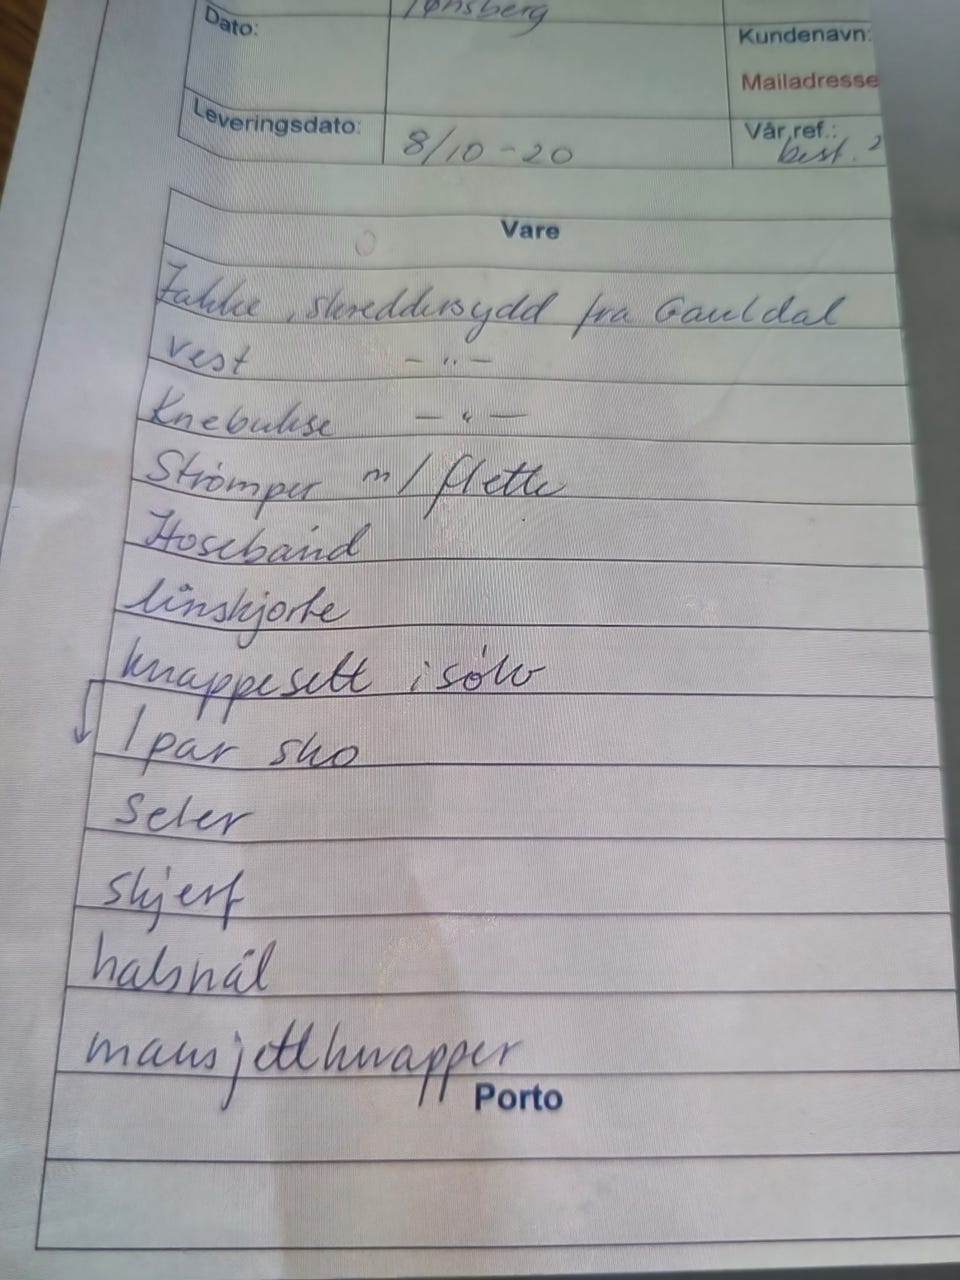 Tønsberg
Dato:
Kundenavn:
Mailadresse
Leveringsdato: 8/10-20
Vår ref.: best. 2
Vare
Jakke, skreddersydd fra Gauldal
Vest - " -
Knebukse - " -
Strømper m/flette
Hosebånd
linskjorte
knappesett i sølv
1 par sko
Seler
skjerf
halsnål
mansjettknapper
Porto